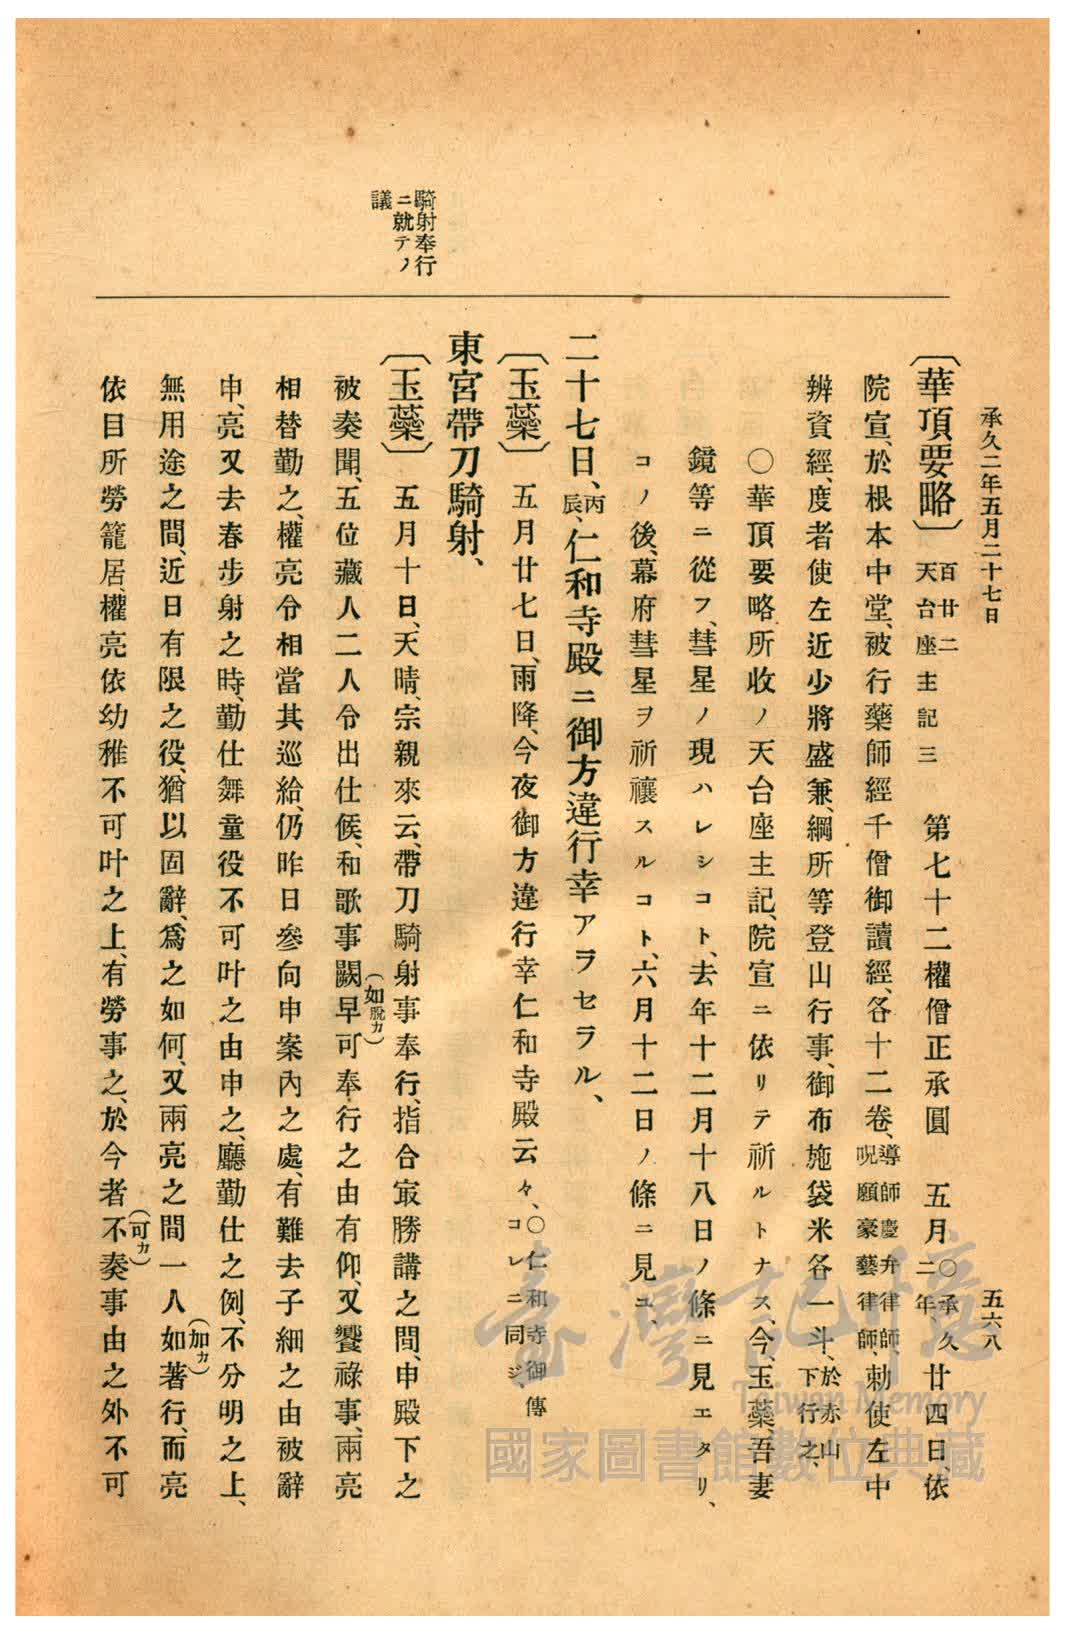 承久二年五月二十七日
五六八
〔華頂要略〕百廿二天台座主記三　第七十二權僧正承圓　五月○承久二年、廿四日、依
院宣、於根本中堂、被行藥師經千僧御讀經、各十二卷、導師慶弁律師、呪願豪藝律師、勅使左中
辨資經、度者使左近少將盛兼、綱所等登山行事、御布施袋米各一斗、於赤山下行之、
○華頂要略所收ノ天台座主記、院宣ニ依リテ祈ルトナス、今、玉蘂、吾妻
鏡等ニ從フ、彗星ノ現ハレシコト、去年十二月十八日ノ條ニ見エタリ、
コノ後、幕府彗星ヲ祈禳スルコト、六月十二日ノ條ニ見ユ、
二十七日、丙辰、仁和寺殿ニ御方違行幸アラセラル、
〔玉蘂〕五月廿七日、雨降、今夜御方違行幸仁和寺殿云々、○仁和寺御傳コレニ同ジ、
東宮帶刀騎射、
騎射奉行ニ就テノ議
〔玉蘂〕五月十日、天晴、宗親來云、帶刀騎射事奉行、指合㝡勝講之間、申殿下之
被奏聞、五位藏人二人令出仕候、和歌事闕(如脫カ)早可奉行之由有仰、又饗祿事、兩亮
相替勤之、權亮令相當其巡給、仍昨日參向申案內之處、有難去子細之由被辭
申、亮又去春步射之時、勤仕舞童役不可叶之由申之、廳勤仕之例、不分明之上、
無用途之間、近日有限之役、猶以固辭、爲之如何、又兩亮之間一人如(加カ)著行、而亮
依目所勞籠居、權亮依幼稚不可叶之上、有勞事之、於今者不(可カ)奏事由之外不可
臺灣記憶
Taiwan Memory
國家圖書館數位典藏